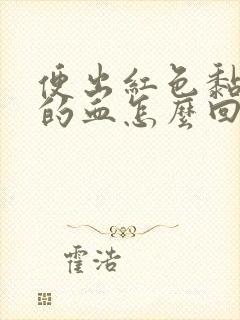 便出紅色黏
的血怎麼回
霍浩